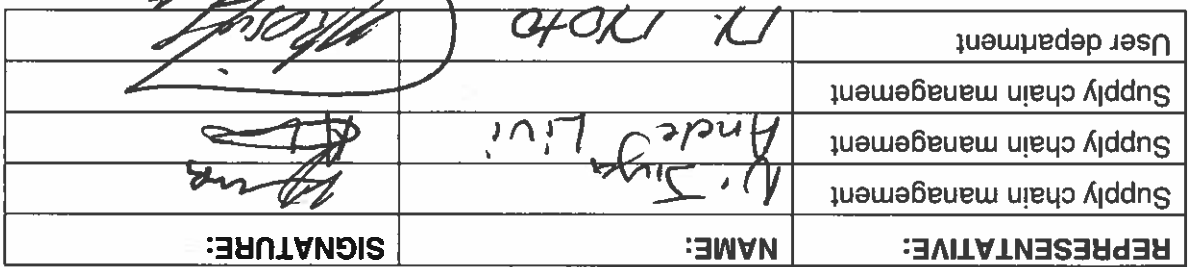 REPRESENTATIVE: NAME: SIGNATURE:
Supply chain management
Supply chain management Ande Livi
Supply chain management
User department N. Noto